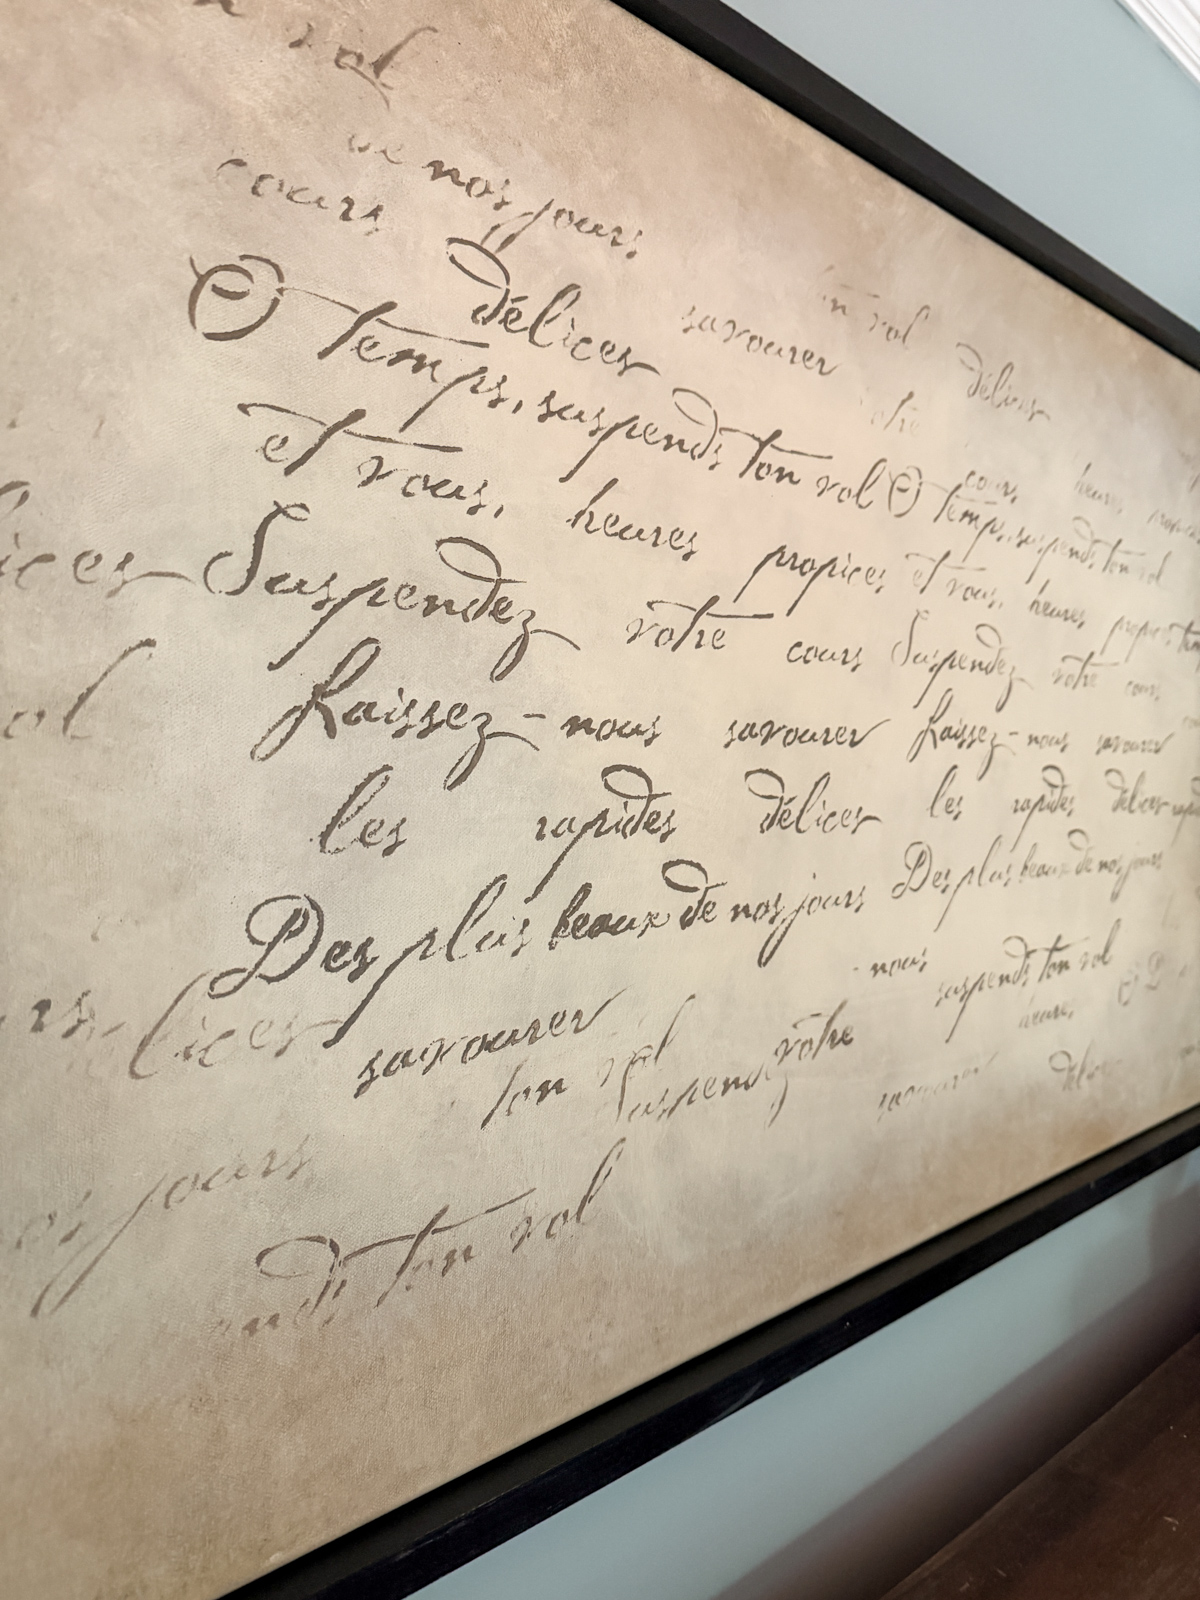 vol
de nos jours
cours
délices savourer vol délices
Ô temps, suspends ton vol Ô temps, suspends ton vol
cours heures
et vous, heures propices et vous, heures propices
lices Suspendez votre cours Suspendez votre cours
ol Laissez-nous savourer Laissez-nous savourer
les rapides délices les rapides délices
Des plus beaux de nos jours Des plus beaux de nos jours
rs lices
savourer votre -nous suspends ton vol
ton vol Suspendez savourer
os jours
ends ton vol